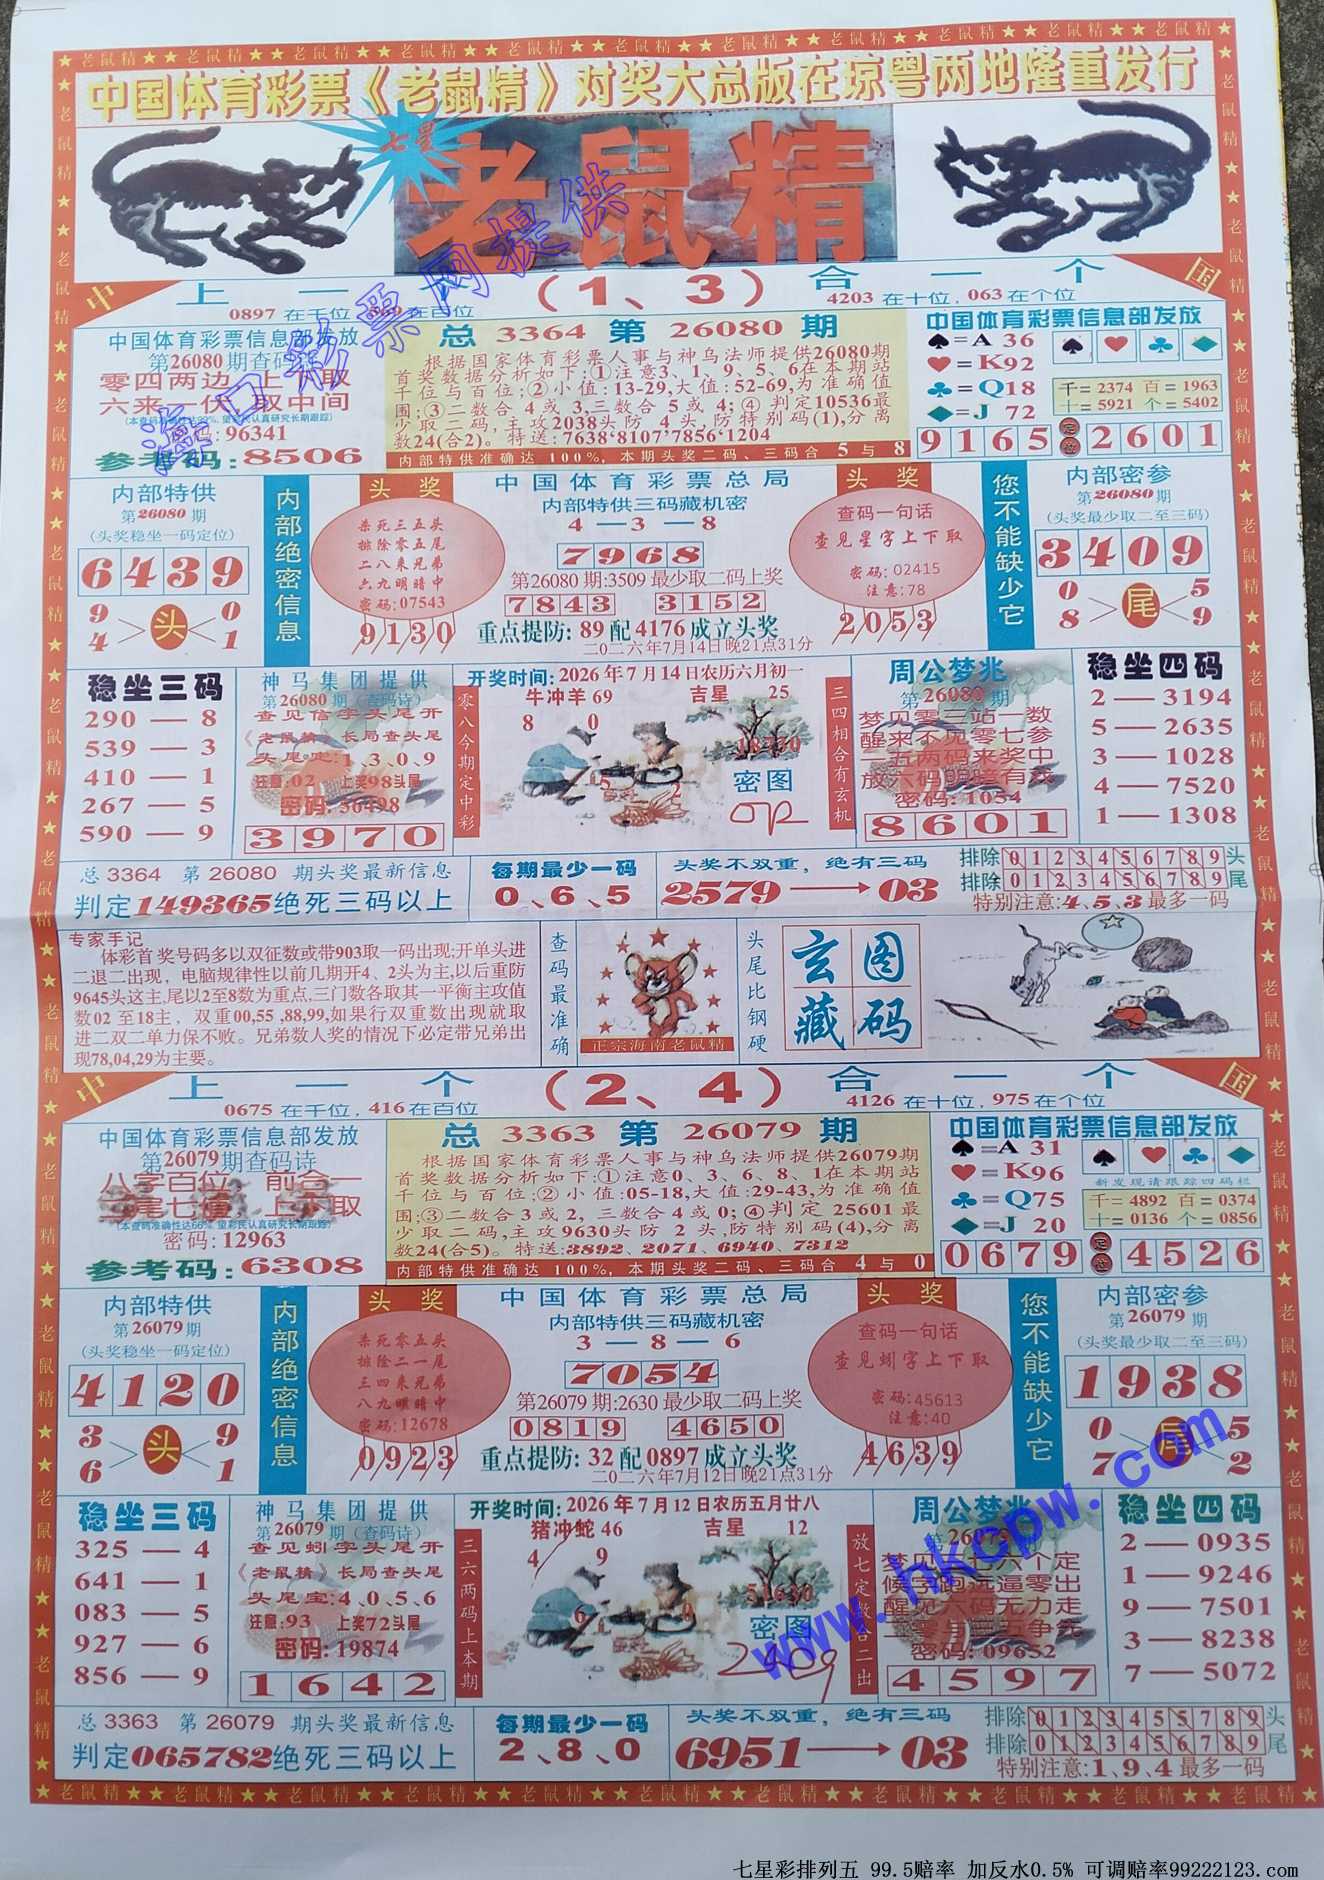 中国体育彩票《老鼠精》对奖大总版在琼粤两地隆重发行
七星
老鼠精
海口彩票网提供
中
国
上一个 (1、3) 合一个
0897 在千位, 在百位
4203 在十位, 063 在个位
中国体育彩票信息部发放
第26080期查码诗
零四两边 上下取
六来一伏 取中间
(本查码准确性达99%, 望彩民认真研究长期跟踪)
密码: 96341
参考码: 8506
总 3364 第 26080 期
根据国家体育彩票人事与神鸟法师提供26080期
首奖数据分析如下:①注意3、1、9、5、6在本期站
千位与百位;②小值:13-29,大值:52-69,为准确值
围;③二数合 4 或 3,三数合 5 或 4;④ 判定10536最
少取二码,主攻2038头防 4 头,防特别码(1),分离
数24(合2)。特送:7638'8107'7856'1204
内部特供准确达 100%, 本期头奖二码、三码合 5 与 8
中国体育彩票信息部发放
♠=A 36
♥=K92
♣=Q18
♦=J 72
千= 2374 百= 1963
十= 5921 个= 5402
9165 定位 2601
内部特供
第26080 期
(头奖稳坐一码定位)
6439
9 4 头 0 1
内部绝密信息
头奖
杀死三五头
排除零五尾
二八来兄弟
六九明暗中
密码:07543
9130
中国体育彩票总局
内部特供三码藏机密
4—3—8
7968
第26080 期:3509 最少取二码上奖
7843 3152
重点提防: 89 配 4176 成立头奖
二〇二六年7月14日晚21点31分
头奖
查码一句话
查见星字上下取
密码:02415
注意:78
2053
您不能缺少它
内部密参
第26080 期
(头奖最少取二至三码)
3409
0 8 尾 5 9
稳坐三码
290 — 8
539 — 3
410 — 1
267 — 5
590 — 9
神马集团提供
第26080 期(查码诗)
查见信字头尾开
《老鼠精》长局查头尾
头尾定:1、3、0、9
注意:02 上奖98头尾
密码:56498
3970
零八今期定中彩
开奖时间: 2026 年 7 月 14 日农历六月初一
牛冲羊 69 吉星 25
8 0
18730
5 2
密图
三四相合有玄机
周公梦兆
第26080 期
梦见零三站一数
醒来不见零七参
一五两码来奖中
放六码明暗有戏
密码:1054
8601
稳坐四码
2 — 3194
5 — 2635
3 — 1028
4 — 7520
1 — 1308
总 3364 第 26080 期头奖最新信息
判定149365绝死三码以上
每期最少一码
0、6、5
头奖不双重, 绝有三码
2579→03
排除 0123456789 头
排除 0123456789 尾
特别注意:4、5、3 最多一码
专家手记
体彩首 奖号码多以双征数或带903取一码出现;开单头进
二退二出现, 电脑规律性以前几期开4、2头为主,以后重防
9645头这主,尾以2至8数为重点,三门数各取其一平衡主攻值
数02 至18主, 双重00,55 ,88,99,如果行双重数出现就取
进二双二单力保不败。兄弟数人奖的情况下必定带兄弟出
现78,04,29为主要。
查码最准确
正宗海南老鼠精
头尾比钢硬
玄图藏码
中
国
上一个 (2、4) 合一个
0675 在千位, 416 在百位
4126 在十位, 975 在个位
中国体育彩票信息部发放
第26079期查码诗
八字百位 前合一
尾七 上下取
(本查码准确性达66%, 望彩民认真研究长期跟踪)
密码:12963
参考码: 6308
总 3363 第 26079 期
根据国家体育彩票人事与神鸟法师提供26079期
首奖数据分析如下:①注意0、3、6、8、1在本期站
千位与百位;② 小值:05-18,大值:29-43,为准确值
围;③二数合 3 或 2, 三数合 4 或 0; ④判定 25601最
少取二码,主攻9630头防 2 头,防特别码(4),分离
数24(合5)。特送:3892、2071、6940、7312
内部特供准确达 100%, 本期头奖二码、三码合 4 与 0
中国体育彩票信息部发放
♠=A 31
♥=K96
♣=Q75
♦=J 20
新发现请跟踪四码栏
千= 4892 百= 0374
十= 0136 个= 0856
0679 定位 4526
内部特供
第26079 期
(头奖稳坐一码定位)
4120
3 6 头 9 1
内部绝密信息
头奖
杀死零五头
排除二一尾
三四来兄弟
八九暗暗中
密码:12678
0923
中国体育彩票总局
内部特供三码藏机密
3—8—6
7054
第26079 期:2630 最少取二码上奖
0819 4650
重点提防: 32 配 0897 成立头奖
二〇二六年7月12日晚21点31分
头奖
查码一句话
查见蚓字上下取
密码:45613
注意:40
4639
您不能缺少它
内部密参
第26079 期
(头奖最少取二至三码)
1938
0 7 尾 5 2
稳坐三码
325 — 4
641 — 1
083 — 5
927 — 6
856 — 9
神马集团提供
第26079 期(查码诗)
查见蚓字头尾开
《老鼠精》长局查头尾
头尾宝:4、0、5、6
注意:93 上奖72头尾
密码:19874
1642
三六两码上本期
开奖时间: 2026 年 7 月 12 日农历五月廿八
猪冲蛇 46 吉星 12
4 9
51630
6 0
密图
放七定数合二出
周公梦兆
第26079 期
密码:09652
4597
稳坐四码
2 — 0935
1 — 9246
9 — 7501
3 — 8238
7 — 5072
www.hkcpw.com
总 3363 第 26079 期头奖最新信息
判定065782绝死三码以上
每期最少一码
2、8、0
头奖不双重, 绝有三码
6951→03
排除 0123456789 头
排除 0123456789 尾
特别注意:1、9、4最多一码
七星彩排列五 99.5赔率 加反水0.5% 可调赔率99222123.com